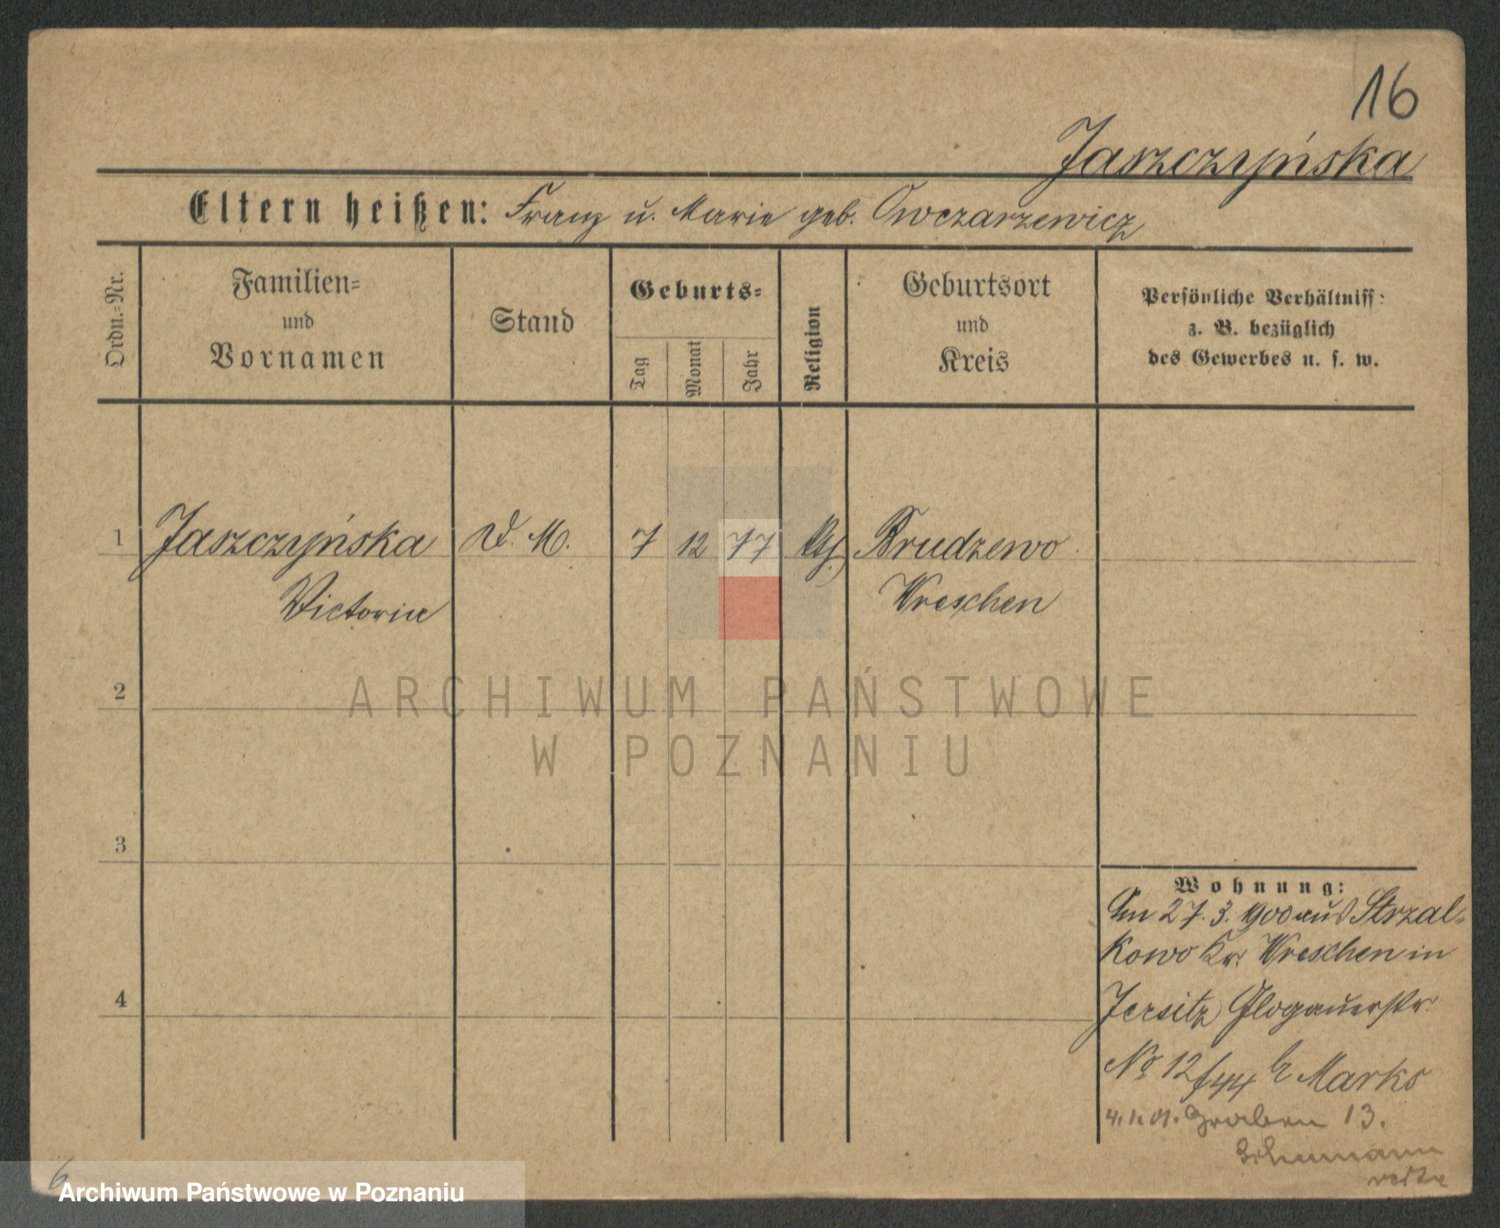 16
Jaszczyńska
Eltern heißen: Franz u. Marie geb. Owczarzewicz
Ordn.-Nr.
Familien-
und
Vornamen
Stand
Geburts-
Tag
Monat
Jahr
Religion
Geburtsort
und
Kreis
Persönliche Verhältniss:
z. B. bezüglich
des Gewerbes u. s. w.
1 Jaszczyńska D. M. 7 12 77 Brudzewo
Victoria Wreschen
2
ARCHIWUM PAŃSTWOWE
W POZNANIU
3
4
Wohnung:
Am 27.3.1900 aus Strzal-
kowo Kr. Wreschen in
Jersitz Glogauerstr.
No 12/44 b Marks
4.1.01. Graben 13.
Schumann
6
Archiwum Państwowe w Poznaniu